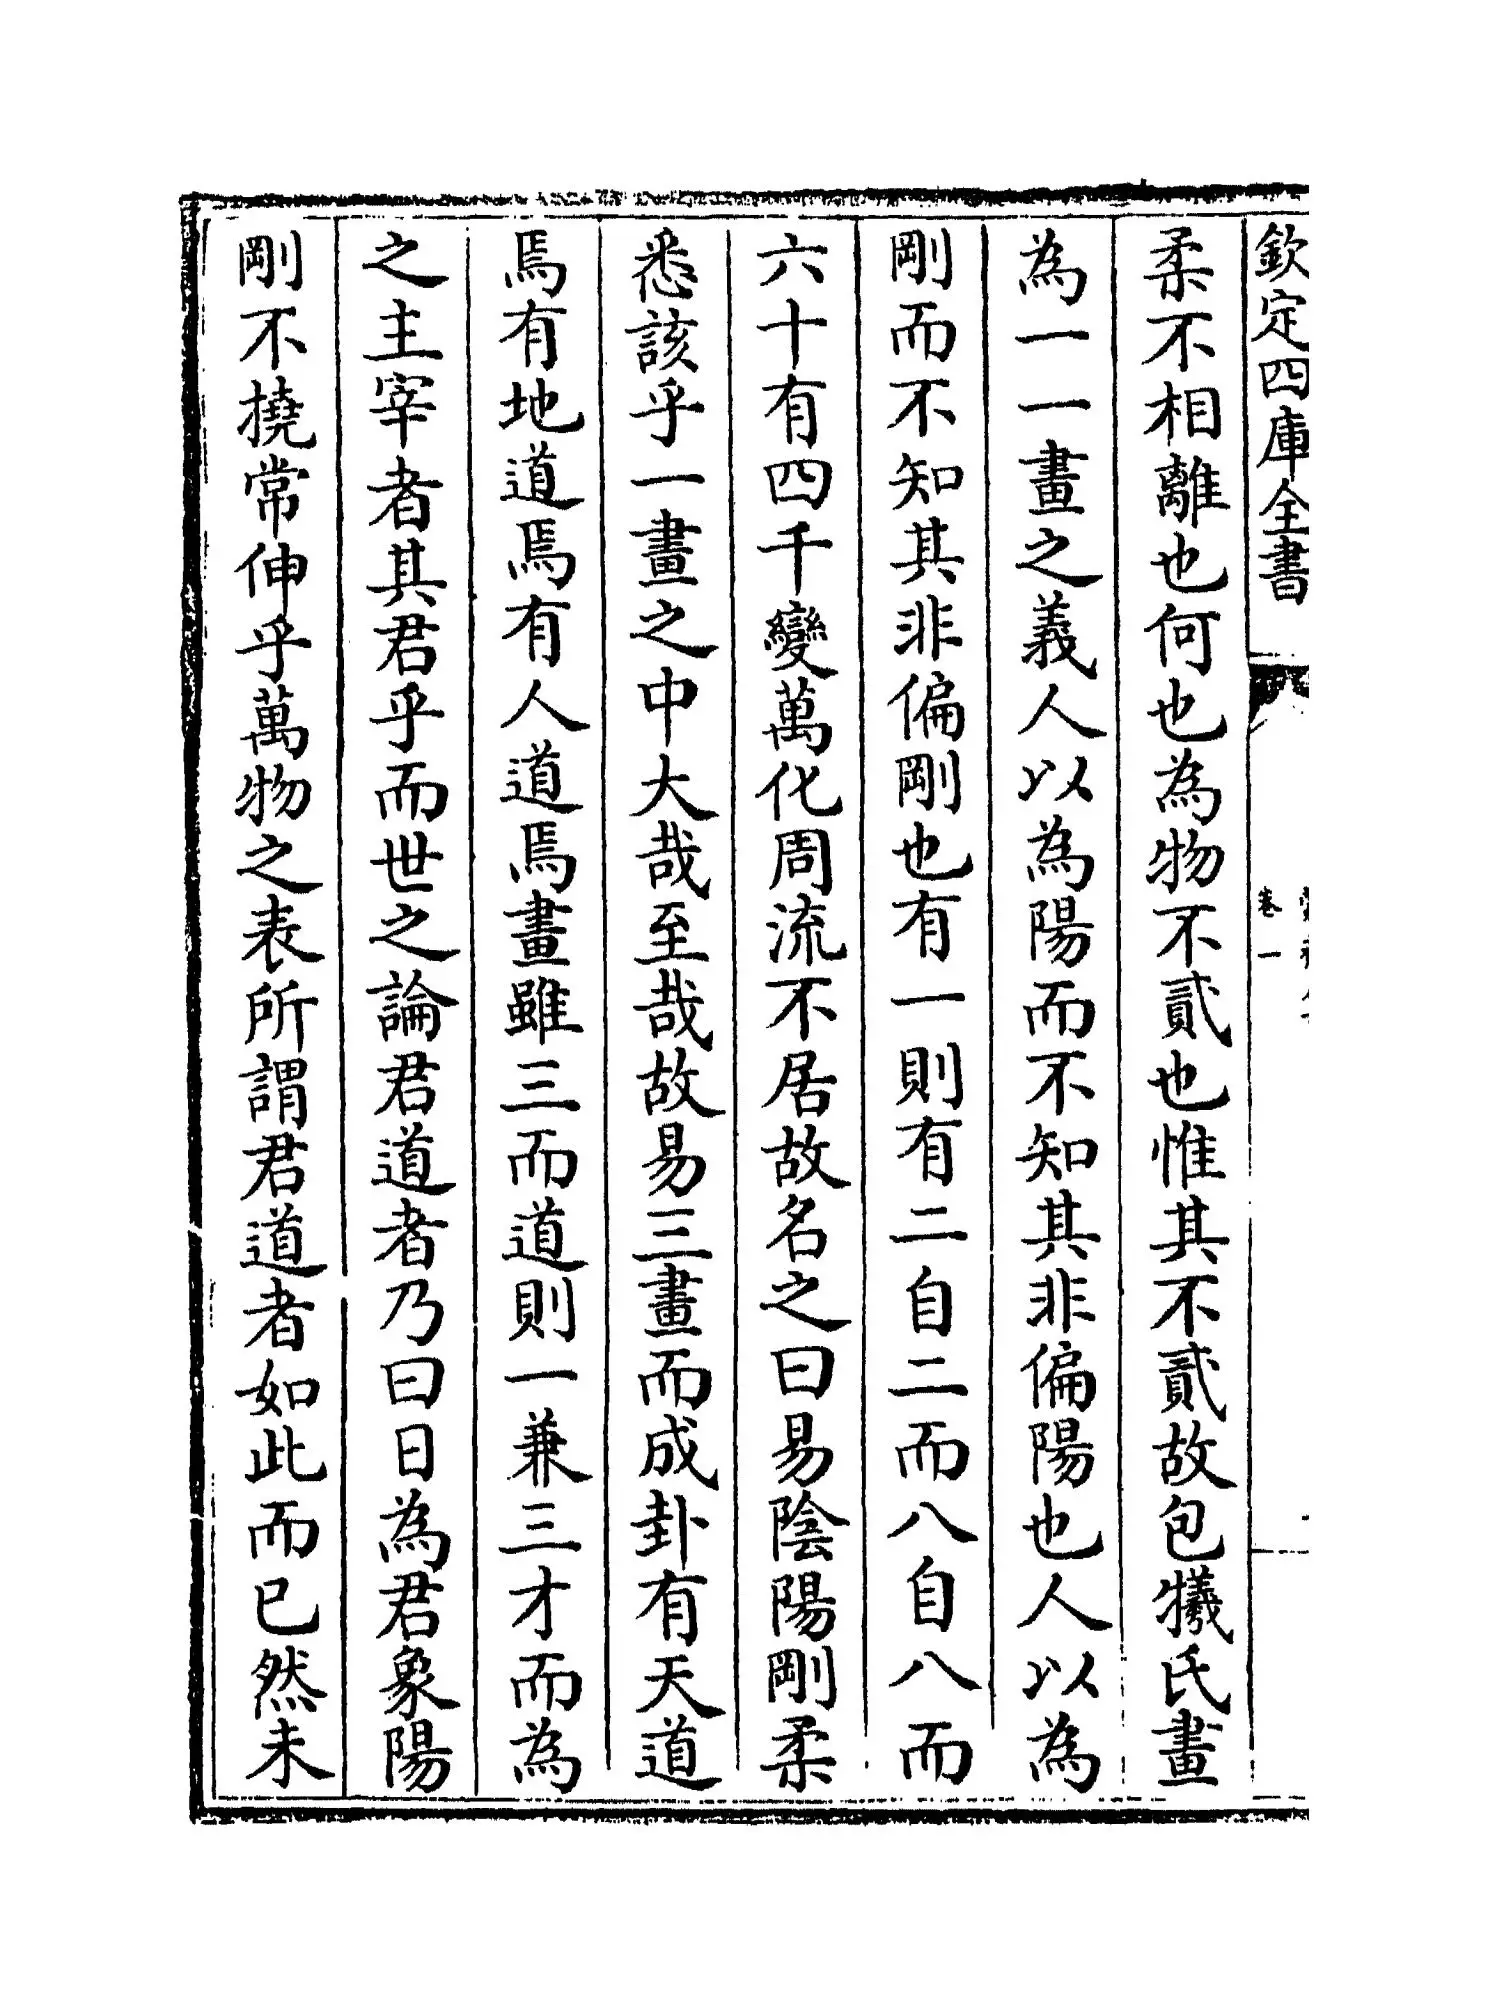 欽定四庫全書
卷一
柔不相離也何也為物不貳也惟其不貳故包犧氏畫
為一一畫之義人以為陽而不知其非偏陽也人以為
剛而不知其非偏剛也有一則有二自二而八自八而
六十有四千變萬化周流不居故名之曰易陰陽剛柔
悉該乎一畫之中大哉至哉故易三畫而成卦有天道
焉有地道焉有人道焉畫雖三而道則一兼三才而為
之主宰者其君乎而世之論君道者乃曰日為君象陽
剛不撓常伸乎萬物之表所謂君道者如此而已然未